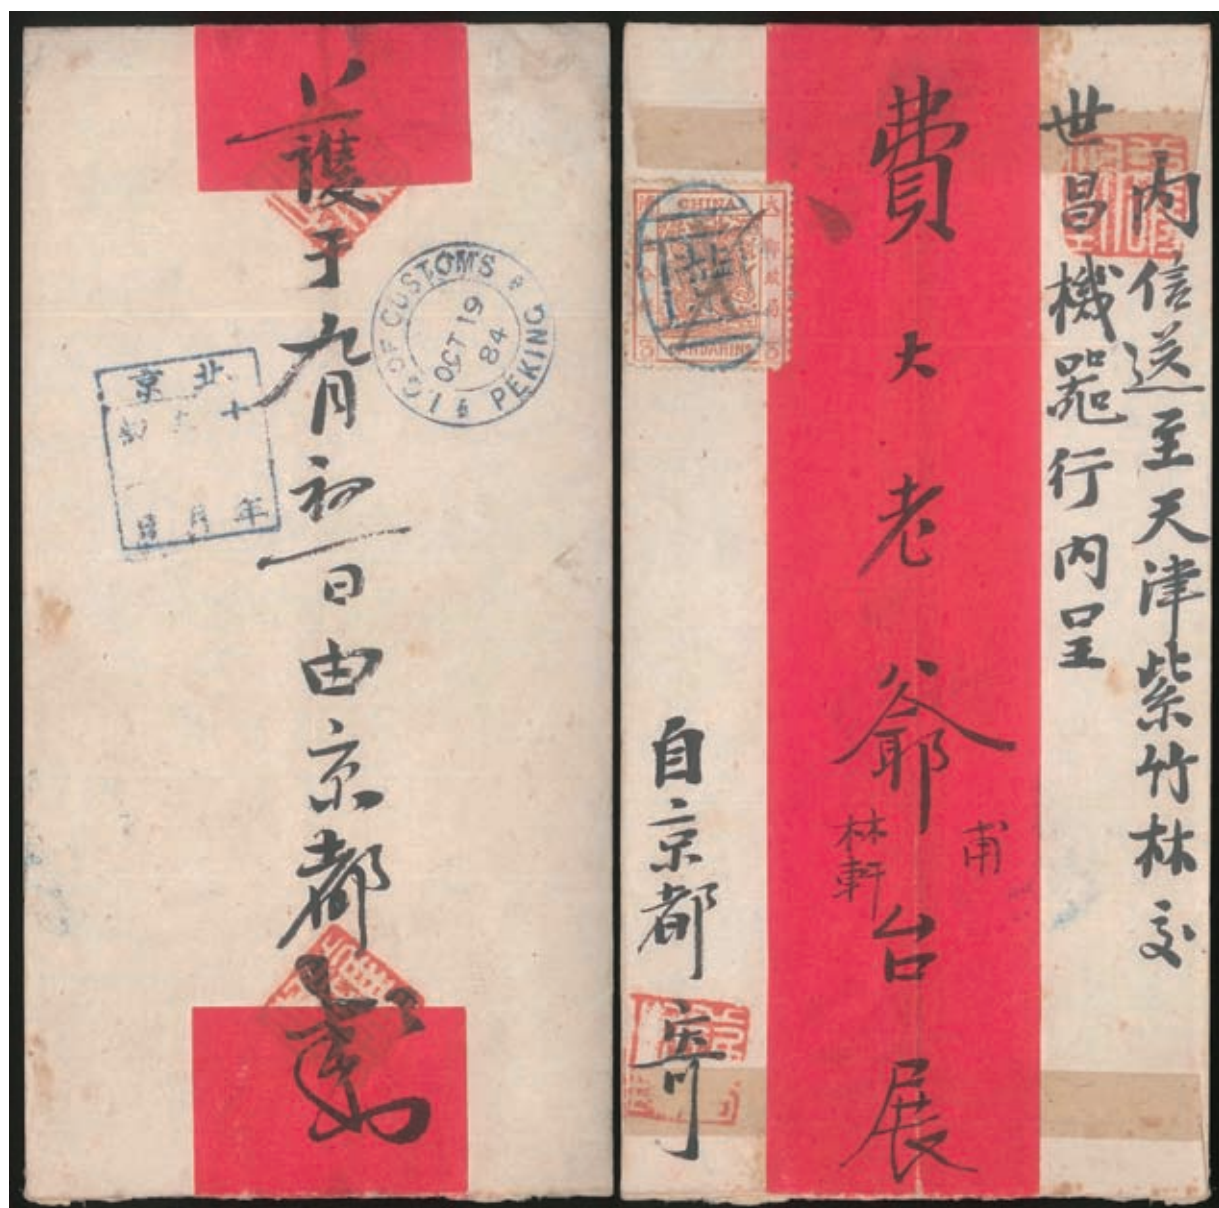 護于九月初一日由京都
I.G. OF CUSTOMS
PEKING
OCT 19
84
北京
年月日
內信送至天津紫竹林交
世昌機器行內呈
費大老爺台展
甫
林軒
自京都寄
CHINA
CANDARINS
郵政局